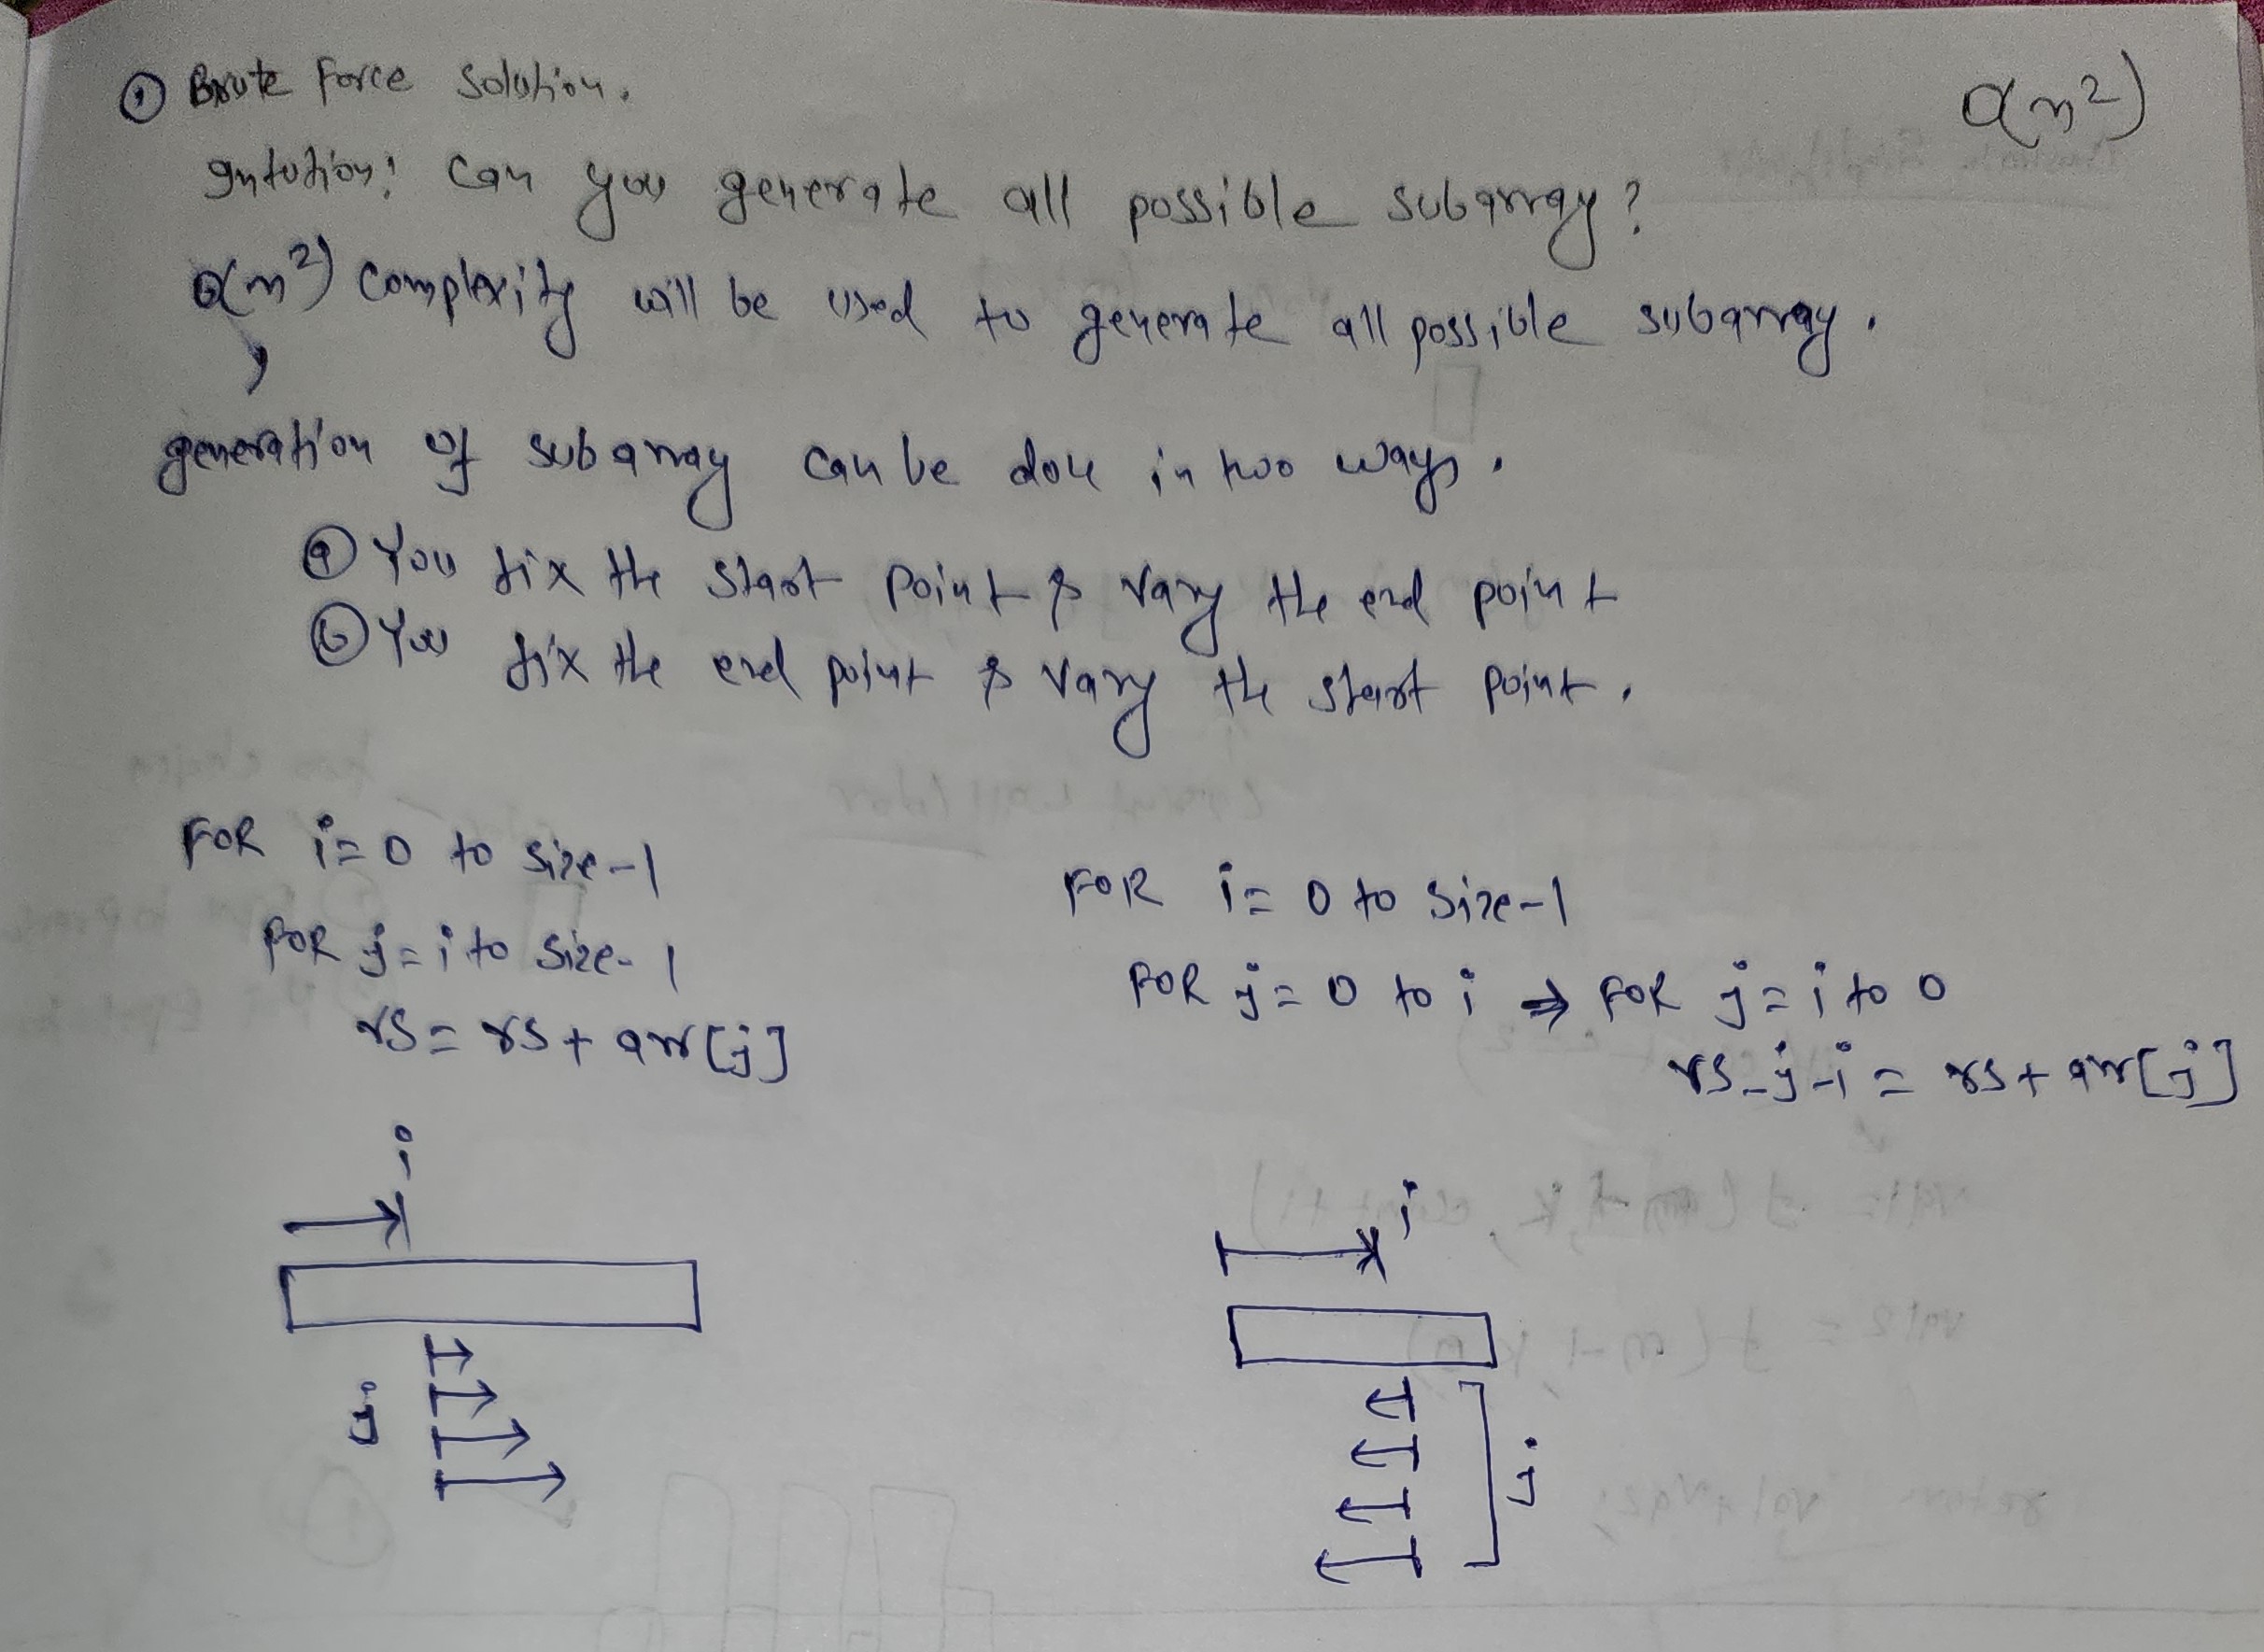 ① Brute Force Solution.
O(n²)
Intution: Can you generate all possible subarray?
O(n²) complexity will be used to generate all possible subarray.
generation of subarray can be done in two ways.
ⓐ You fix the start point & vary the end point
ⓑ You fix the end point & vary the start point.
FOR i=0 to size-1
FOR j=i to size-1
rs = rs + arr[j]
i
j
FOR i=0 to size-1
FOR j=0 to i ⇒ FOR j=i to 0
rs_j-i = rs + arr[j]
i
j